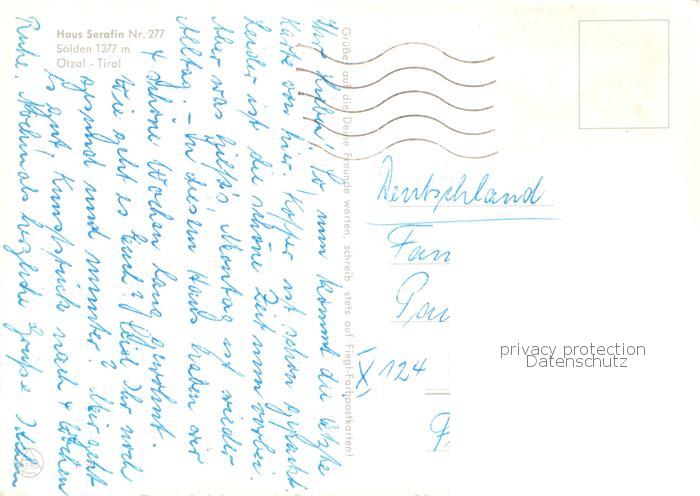 Haus Serafin Nr. 277
Sölden 1377 m
Ötzal - Tirol
Ihr Lieben! So, nun kommt die letzte
Karte von hier, Koffer ist schon gepackt.
Leider ist die schöne Zeit nun vorbei.
Aber was hilft's, Montag ist wieder
Alltag. - In diesem Haus haben wir
4 schöne Wochen lang gewohnt.
Wie geht es Euch? Seid Ihr noch
gesund und munter? Mir geht
es gut, Kunststück nach 4 Wochen
Ruhe. Nochmals herzliche Grüße
Grüße! auf die Deine Freunde warten, schreib stets auf Fiegl-Farbpostkarten!
Deutschland
Fam
Pau
124
privacy protection
Datenschutz